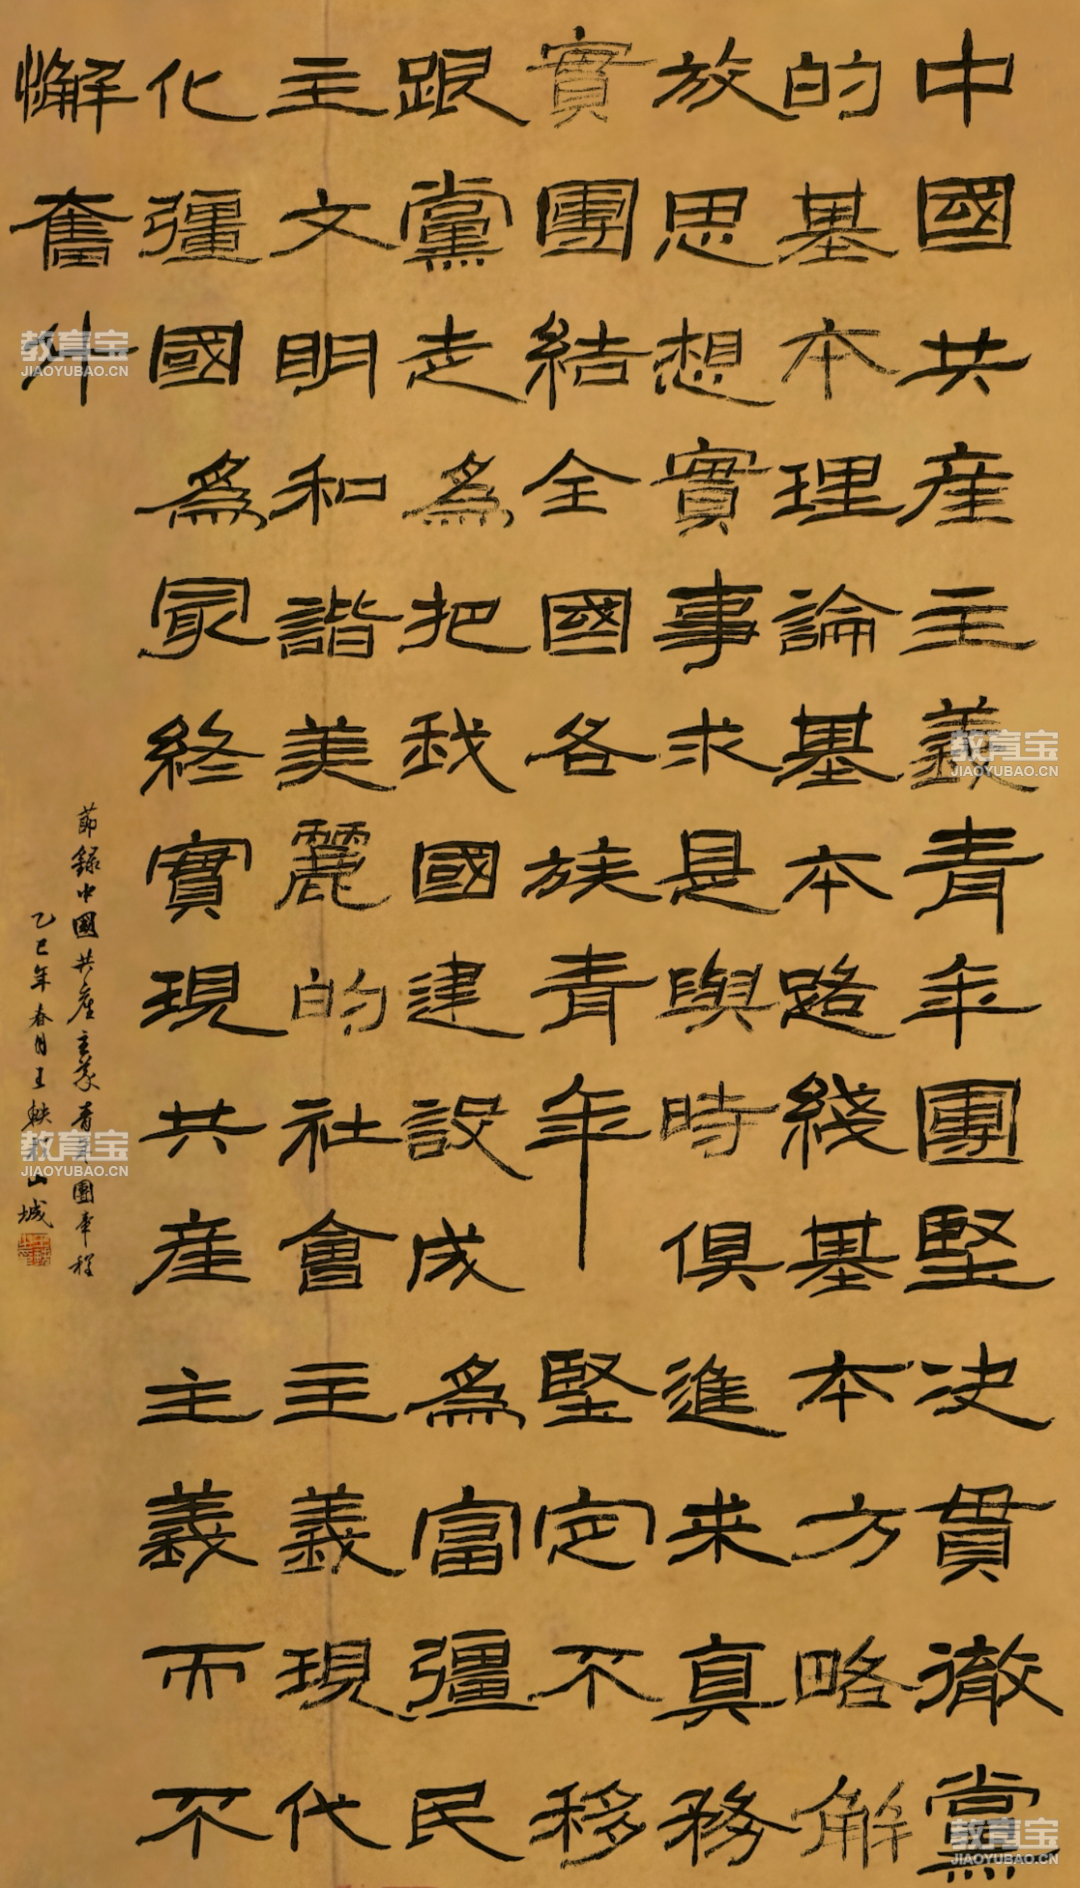 中國共產主義青年團堅决貫徹黨
的基本理論基本路綫基本方略解
放思想實事求是與時俱進求真務
實團結全國各族青年堅定不移
跟黨走為把我國建設成為富彊民
主文明和諧美麗的社會主義現代
化彊國為最終實現共產主義而不
懈奮鬥
節錄中國共產主義青年團章程
乙巳年春月王軼於山城
教育宝
JIAOYUBAO.CN
教育宝
JIAOYUBAO.CN
教育宝
JIAOYUBAO.CN
教育宝
JIAOYUBAO.CN